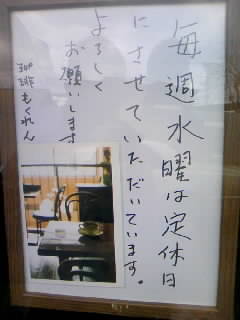 毎週水曜は定休日
にさせていただいています。
よろしく
お願いします
珈琲もくれん